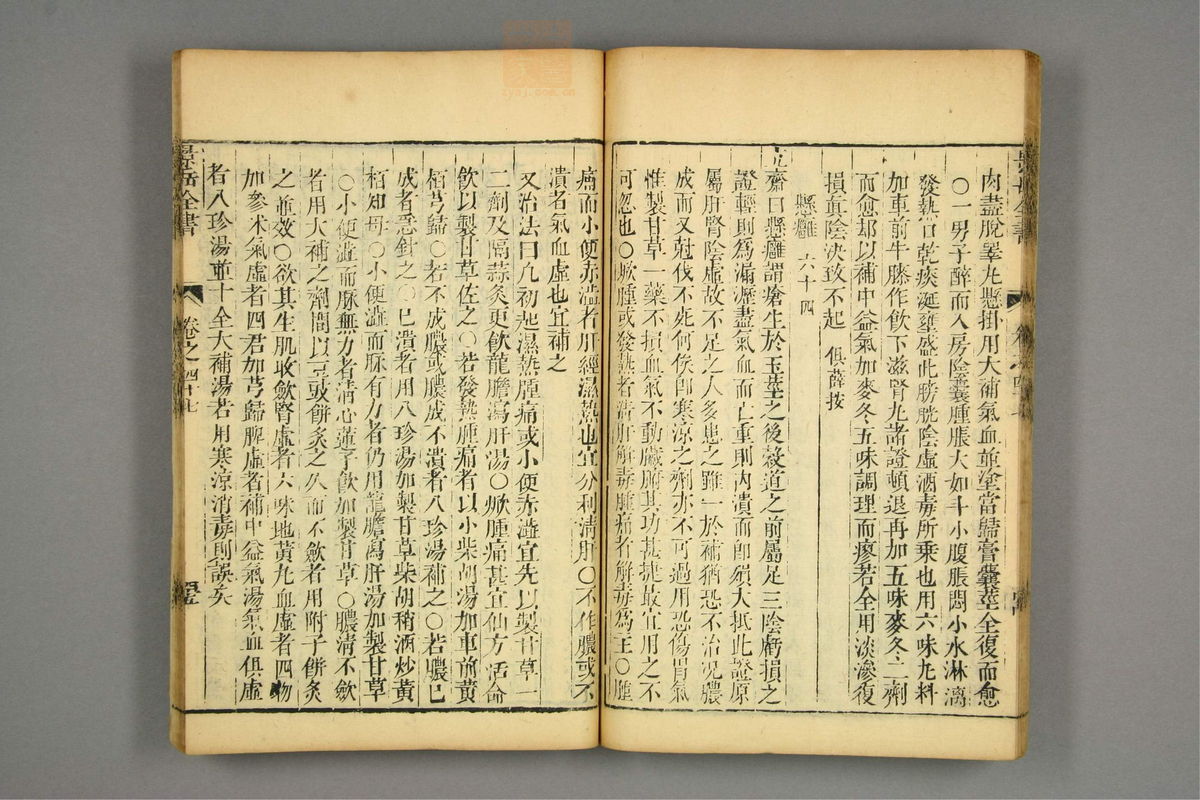 肉盡脫睪丸懸掛用大補氣血並塗當歸膏囊莖全復而愈
〇一男子醉而入房陰囊腫脹大如斗小腹脹悶小水淋漓
發熱口乾痰涎壅盛此膀胱陰虛酒毒所乘也用六味丸料
加車前牛膝作飲下滋腎丸諸證頓退再加五味麥冬二劑
而愈却以補中益氣加麥冬五味調理而痊若全用淡滲復
損真陰决致不起 俱薛按
懸癰 六十四
立齋曰懸癰謂瘡生於玉莖之後穀道之前屬足三陰虧損之
證輕則為漏瀝盡氣血而亡重則內潰而即殞大抵此證原
屬肝腎陰虛故不足之人多患之雖一於補猶恐不治況膿
成而又尅伐不死何俟即寒涼之劑亦不可過用恐傷胃氣
惟製甘草一藥不損血氣不動臟腑其功甚捷最宜用之不
可忽也〇焮腫或發熱者清肝解毒腫痛者解毒為主〇腫
痛而小便赤澁者肝經濕熱也宜分利清肝〇不作膿或不
潰者氣血虛也宜補之
又治法曰凡初起濕熱腫痛或小便赤澁宜先以製甘草一
二劑及隔蒜灸更飲龍膽瀉肝湯〇焮腫痛甚宜仙方活命
飲以製甘草佐之〇若發熱腫痛者以小柴胡湯加車前黃
栢芎歸〇若不成膿或膿成不潰者八珍湯補之〇若膿已
成者急針之〇已潰者用八珍湯加製甘草柴胡稍酒炒黃
栢知母〇小便澁而脉有力者仍用龍膽瀉肝湯加製甘草
〇小便澁而脉無力者清心蓮子飲加製甘草〇膿清不歛
者用大補之劑間以豆豉餅灸之久而不歛者用附子餅灸
之並效〇欲其生肌收歛腎虛者六味地黃丸血虛者四物
加參术氣虛者四君加芎歸脾虛者補中益氣湯氣血俱虛
者八珍湯並十全大補湯若用寒涼消毒則誤矣
景岳全書
卷之四十七
zysj.com.cn